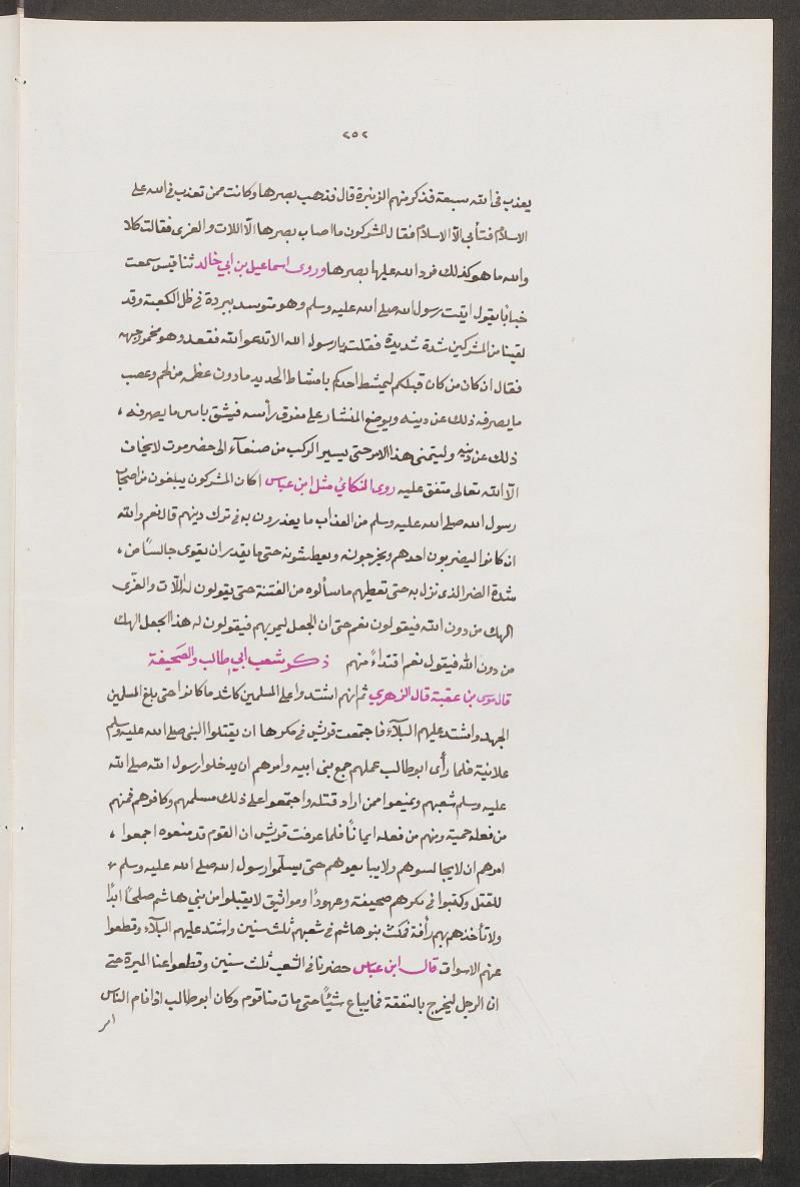 ٢٥٢
يعذب في الله سبعة فذكر منهم الزنيرة قال فذهب بصرها وكانت ممن تعذب في الله على
الاسلام فتأبى الّا الاسلام فقال المشركون ما اصاب بصرها الّا اللات والعزى فقالت كلا
والله ما هو كذلك فرد الله عليها بصرها وروى اسماعيل بن ابي خالد ثنا قيس سمعت
خبابًا يقول اتيت رسول الله صلى الله عليه وسلم وهو متوسد ببردة في ظل الكعبة وقد
لقينا من المشركين شدة شديدة فقلت يا رسول الله الا تدعو الله فقعد وهو محمر وجهه
فقال ان كان من كان قبلكم ليمشط احدكم بامشاط الحديد ما دون عظمه من لحم وعصب
ما يصرفه ذلك عن دينه ويوضع المنشار على مفرق رأسه فيشق باس ما يصرفه ،
ذلك عن دينه وليتمنى هذا الامر حتى يسير الركب من صنعآء الى حضرموت لا يخاف
الّا الله تعالى متفق عليه روى البكائي مثل ابن عباس اكان المشركون يبلغون من اصحاب
رسول الله صلى الله عليه وسلم من العذاب ما يعذرون به في ترك دينهم قال نعم والله
ان كانوا ليضربون احدهم ويخرجونه ويعطشونه حتى ما يقدر ان يقوى جالسًا من ،
شدة الضر الذى نزل به حتى تعطيهم ما سألوه من الفتنة حتى يقولون له اللّات والعزّى
الهك من دون الله فيقولون نعم حتى ان الجعل ليمر بهم فيقولون له هذا الجعل الهك
من دون الله فيقول نعم اقتداءً منهم ذكر شعب ابي طالب والصَحيفة
قال موسى بن عقبة قال الزهري ثم انهم اشتدوا على المسلمين كاشد ما كانوا حتى بلغ المسلمين
الجهد واشتد عليهم البلآء فاجتمعت قريش في مكرها ان يقتلوا النبى صلى الله عليه وسلم
علانية فلما رأى ابو طالب عملهم جمع بنى ابيه وامرهم ان يدخلوا رسول الله صلى الله
عليه وسلم شعبهم ويمنعوا ممن اراد قتله واجتمعوا على ذلك مسلمهم وكافرهم فمنهم
من فعله حمية ومنهم من فعله ايمانًا فلما عرفت قريش ان القوم قد منعوه اجمعوا ،
امرهم ان لا يجالسوهم ولا يبايعوهم حتى يسلّموا رسول الله صلى الله عليه وسلم
للقتل وكتبوا في مكرهم صحيفة وعهودًا ومواثيق لا يقبلوا من بني هاشم صلحًا ابدًا
ولا تأخذهم بهم رأفة فمكث بنو هاشم في شعبهم ثلث سنين واشتد عليهم البلآء وقطعوا
عنهم الاسواق قال ابن عباس حضرنا في الشعب ثلث سنين وقطعوا عنا الميرة حتى
ان الرجل ليخرج بالنفقة فما يباع شيئًا حتى مات منا قوم وكان ابو طالب اذا نام الناس
امر